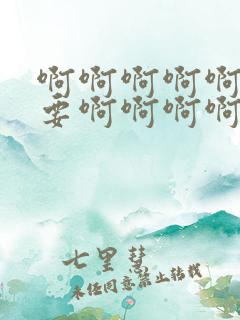 啊啊啊啊啊
要啊啊啊啊
七里彗
未经同意禁止转载